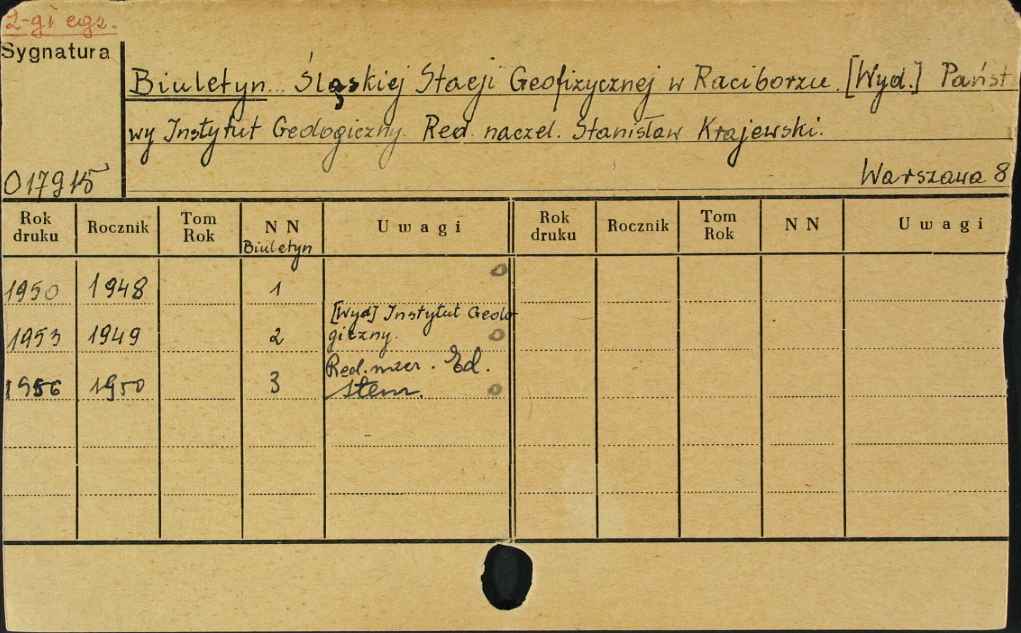 2-gi egz.
Sygnatura
Biuletyn... Śląskiej Stacji Geofizycznej w Raciborzu. [Wyd.] Państ
wy Instytut Geologiczny. Red. naczel. Stanisław Krajewski.
017915
Warszawa 8
Rok druku Rocznik Tom Rok NN Uwagi Rok druku Rocznik Tom Rok NN Uwagi
Biuletyn
1950 1948 1
[Wyd] Instytut Geolo-
1953 1949 2 giczny.
Red. Ed.
1956 1950 3